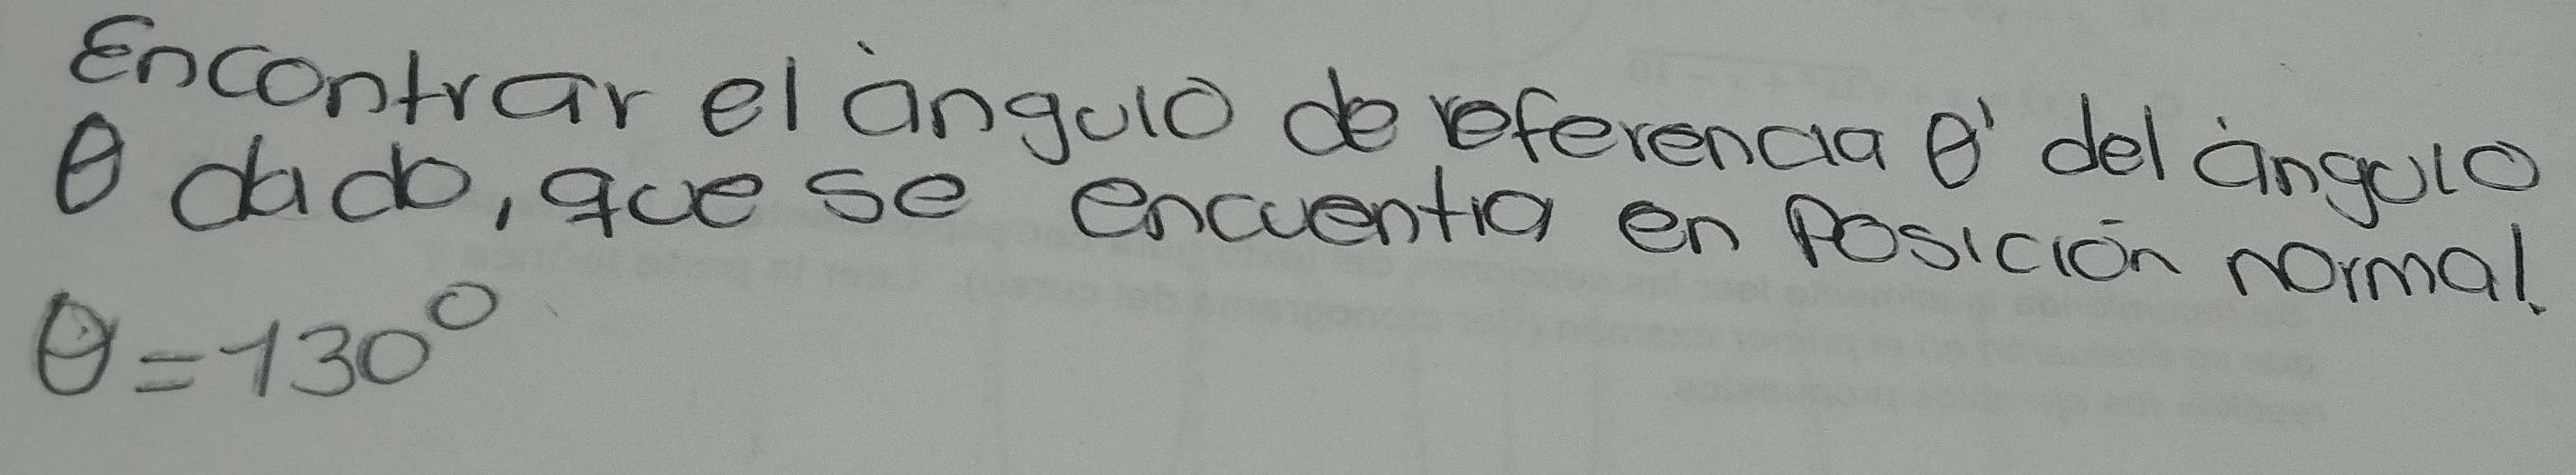 Encontrar el ángulo de referencia θ' del ángulo
θ dado, que se encuentra en Posición normal.
θ = 130°